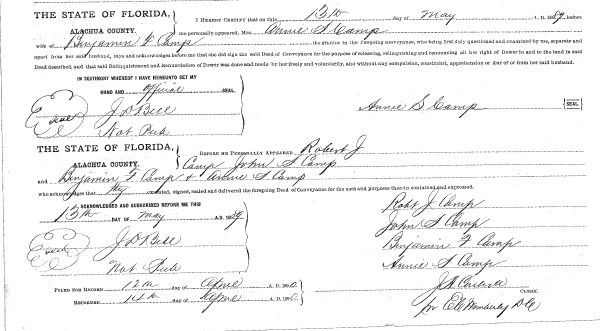 THE STATE OF FLORIDA,
ALACHUA COUNTY.
I HEREBY CERTIFY that on this 13th day of May A. D. 1889 before
me personally appeared, Mrs. Annie S Camp
wife of Benjamin F Camp the grantor in the foregoing conveyance, who being first duly questioned and examined by me, separate and
apart from her said husband, says and acknowledges before me that she did sign the said Deed of Conveyance for the purpose of releasing, relinquishing and renouncing all her right of Dower in and to the land in said
Deed described, and that said Relinquishment and Renunciation of Dower was done and made by her freely and voluntarily, and without any compulsion, constraint, apprehension or fear of or from her said husband.
IN TESTIMONY WHEREOF I HAVE HEREUNTO SET MY
HAND AND official SEAL.
Seal
J D Bell
Not Pub
Annie S Camp SEAL
THE STATE OF FLORIDA,
ALACHUA COUNTY.
BEFORE ME PERSONALLY APPEARED Robert J
Camp John S Camp
and Benjamin F Camp + Annie S Camp
who acknowledges that they executed, signed, sealed and delivered the foregoing Deed of Conveyance for the uses and purposes therein contained and expressed.
ACKNOWLEDGED AND SUBSCRIBED BEFORE ME THIS
13th DAY OF May A. D. 1889
Seal
J D Bell
Not Pub
Robt J Camp
John S Camp
Benjamin F Camp
Annie S Camp
FILED FOR RECORD 12th day of April A. D.
RECORDED 14th day of April A. D.
CLERK.
D C